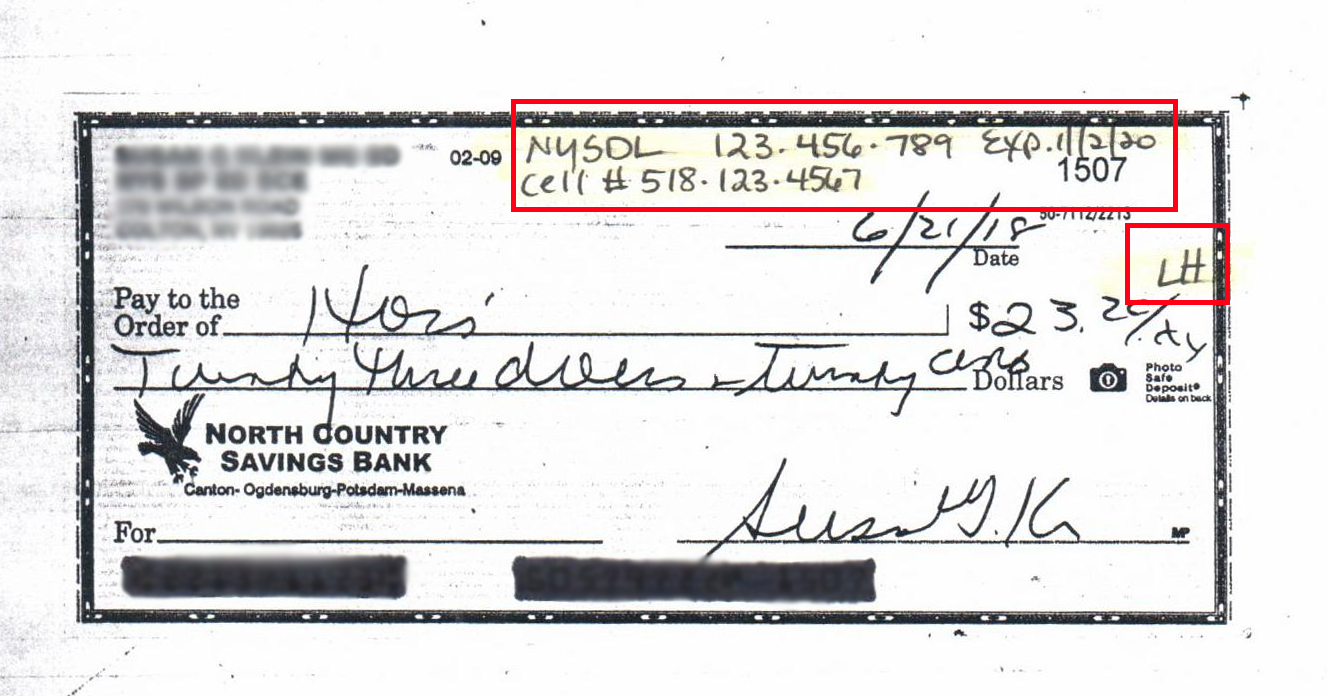 02-09
NYSDL 123-456-789 Exp. 11/2/20
cell # 518-123-4567
1507
50-7112/2213
6/21/18
Date
LH
Pay to the
Order of
$23.
Twenty three
twenty
Dollars
Photo
Safe
Deposit®
Details on back
NORTH COUNTRY
SAVINGS BANK
Canton-Ogdensburg-Potsdam-Massena
For
MP